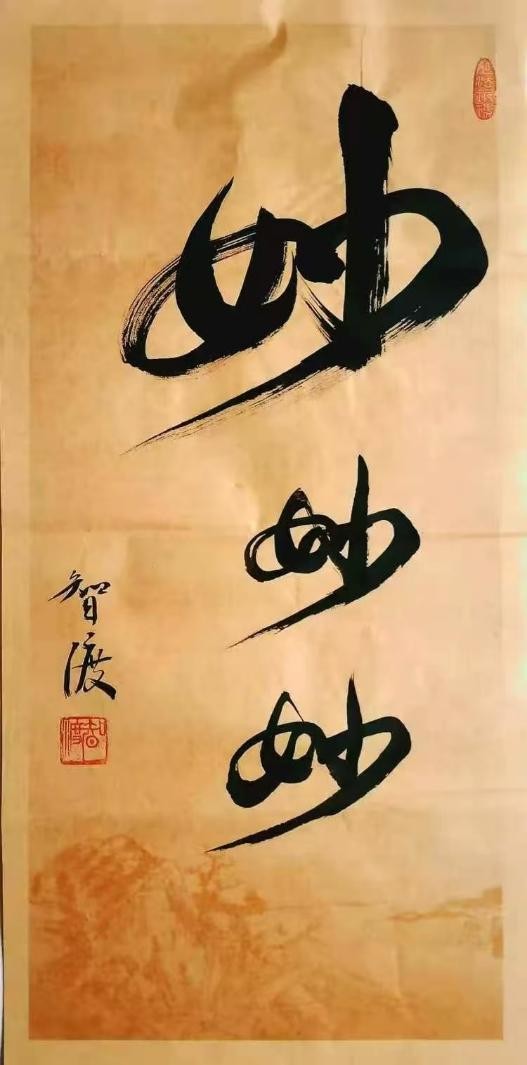 妙
妙
妙
智渡